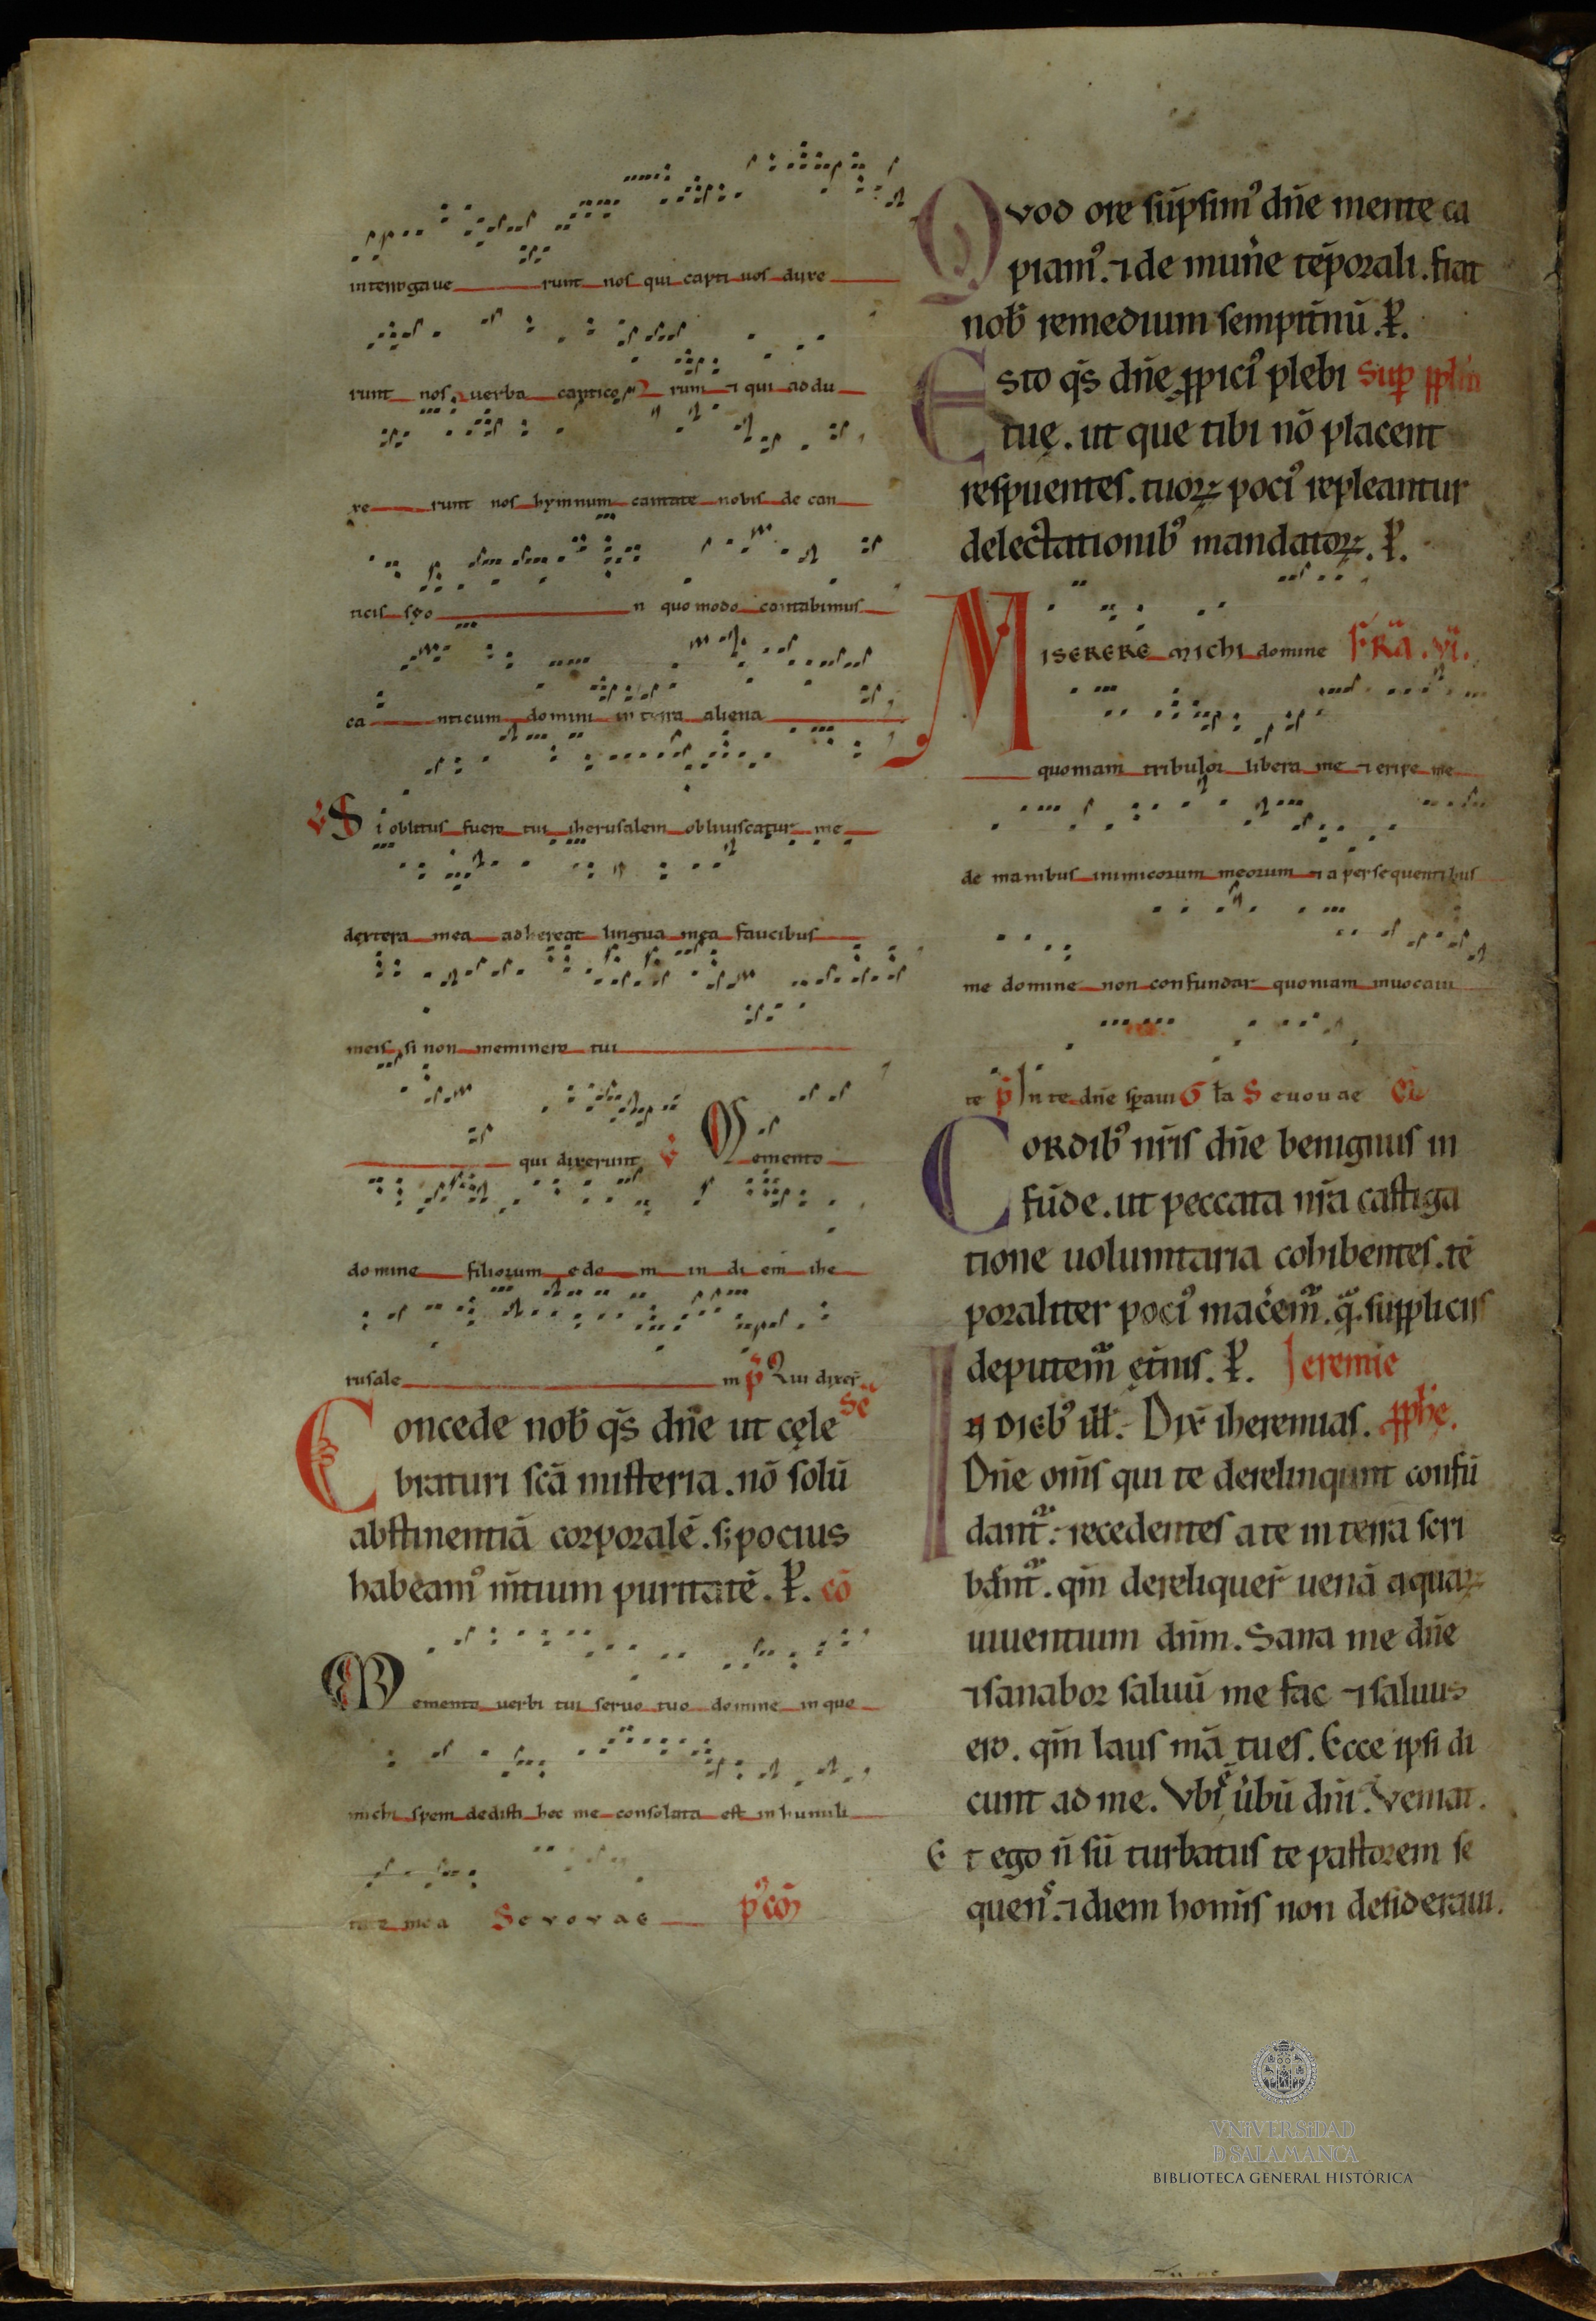 interrogaue runt nos qui capti uos duxe
runt nos uerba canticorum et qui addu
xe runt nos hymnum cantate nobis de can
ticis syo n quo modo cantabimus
ca nticum domini in terra aliena
Si oblitus fuero tui iherusalem obliuiscatur me
dextera mea adhereat lingua mea faucibus
meis si non meminero tui
qui dixerunt V Memento
domine filiorum edo m in di em ihe
rusale m p̄ Qui dixer̄
Concede nob̄ q̄s dn̄e ut cęle Sē
braturi sc̄a misteria. nō solū
abstinentiā corporalē. s; pocius
habeamꝰ m̄tium puritatē. P. cō
Memento uerbi tui seruo tuo domine in quo
michi spem dedisti hec me consolata est in humili
tate mea Seuouae p̄ cō
Quod ore sūpsimꝰ dn̄e mente ca
piamꝰ. ⁊ de mun̄e tēporali. fiat
nob̄ remedium sempit̄nū. P.
Esto q̄s dn̄e ꝓpiciꝰ plebi Suꝑ pplm̄
tuę. ut que tibi nō placent
respuentes. tuoꝝ pociꝰ repleantur
delectationibꝰ mandatoꝝ. P.
MISERERE MIChI domine FR̄A .VI.
quoniam tribulor libera me ⁊ eripe me
de manibus inimicorum meorum ⁊ a persequentibus
me domine non confundar quoniam inuocaui
te p̄ In te dn̄e sꝑaui Gl̄a Seuouae
Cordibꝰ nr̄is dn̄e benignus in
fūde. ut peccata nr̄a castiga
tione uoluntaria cohibentes. tē
poraliter pociꝰ mac̄em̄. q̄. suppliciis
deputem̄ et̄nis. P. Jeremie
In diebꝰ ill̄. Dix̄ iheremias. ꝓph̄e.
Dn̄e om̄s qui te derelinqunt confū
dant̄. recedentes a te in terra scri
bant̄. qm̄ dereliquer̄ uenā aquaꝝ
uiuentium dn̄m. Sana me dn̄e
⁊ sanabor saluū me fac ⁊ saluus
ero. qm̄ laus mā tu es. Ecce ipsi di
cunt ad me. Vbi ē ūbū dn̄i. Veniat.
Et ego n̄ sū turbatus te pastorem se
quens. ⁊ diem hom̄is non desideraui.
VNIVERSIDAD
D SALAMANCA
BIBLIOTECA GENERAL HISTÓRICA